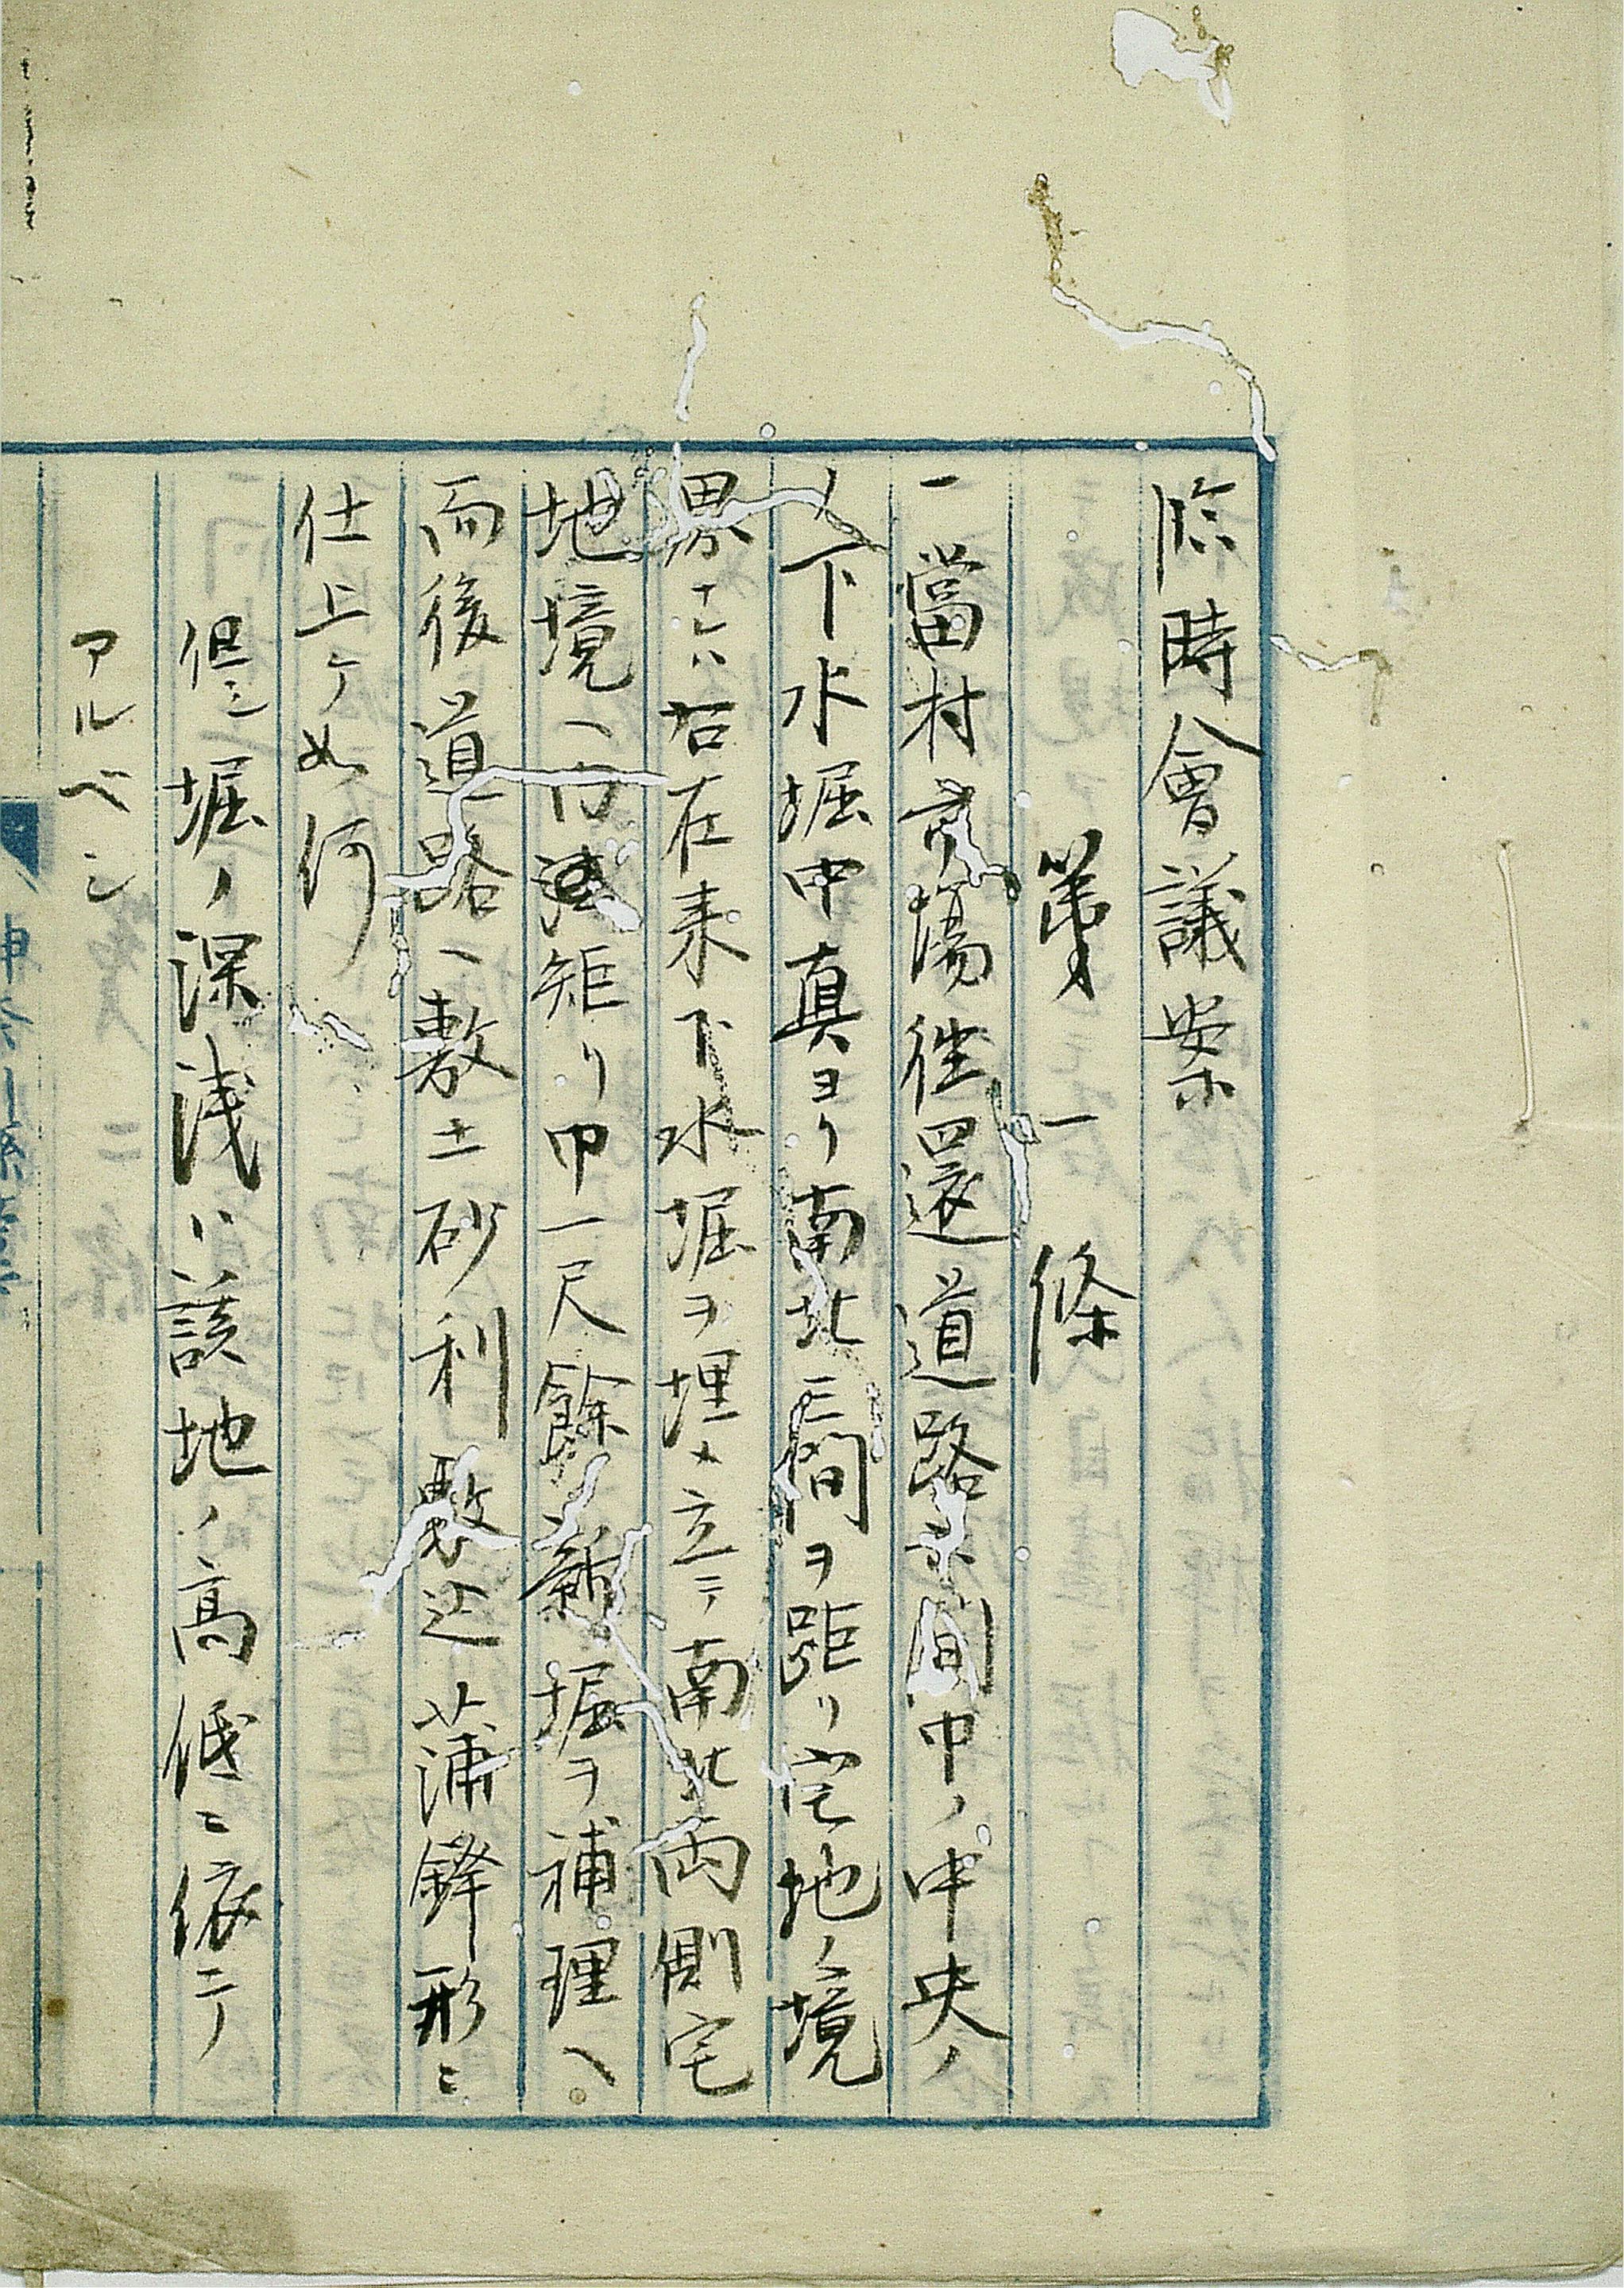 臨時會議案
第一條
一當村市場往還道路間中ノ中央ノ
ノ下水堀中真ヨリ南北三間ヲ距リ宅地ノ境
界ナレハ右在来下水堀ヲ埋メ立テ南北両側宅
地境ヘ矩リ巾一尺餘ノ新堀ヲ補理ヘ
而後道路ヘ敷土砂利敷込蒲鉾形ニ
仕上ケ如何
但シ堀ノ深浅ハ該地ノ高低ニ依テ
アルベシ